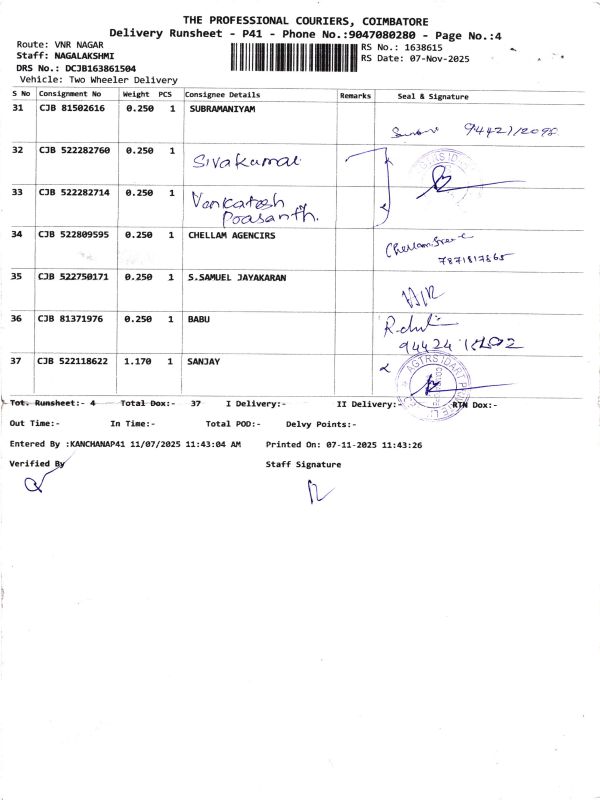 THE PROFESSIONAL COURIERS, COIMBATORE
Delivery Runsheet - P41 - Phone No.:9047080280 - Page No.:4
Route: VNR NAGAR
RS No.: 1638615
Staff: NAGALAKSHMI
RS Date: 07-Nov-2025
DRS No.: DCJB163861504
Vehicle: Two Wheeler Delivery
S No Consignment No Weight PCS Consignee Details Remarks Seal & Signature
31 CJB 81502616 0.250 1 SUBRAMANIYAM
32 CJB 522282760 0.250 1 Sivakumar
33 CJB 522282714 0.250 1 Venkatesh
Poasanth.
34 CJB 522809595 0.250 1 CHELLAM AGENCIRS
7871817865
35 CJB 522750171 0.250 1 S.SAMUEL JAYAKARAN
36 CJB 81371976 0.250 1 BABU
37 CJB 522118622 1.170 1 SANJAY
Tot. Runsheet:- 4 Total Dox:- 37 I Delivery:- II Delivery:- RTN Dox:-
Out Time:- In Time:- Total POD:- Delvy Points:-
Entered By :KANCHANAP41 11/07/2025 11:43:04 AM Printed On: 07-11-2025 11:43:26
Verified By Staff Signature